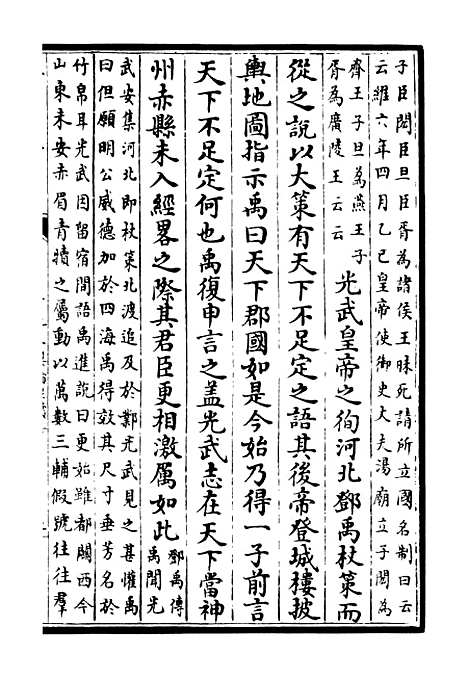 子臣閎臣旦臣胥為諸侯王昧死請所立國名制曰云
云維六年四月乙巳皇帝使御史大夫湯廟立子閎為
齊王子旦為燕王子
胥為廣陵王云云
光武皇帝之徇河北鄧禹杖策而
從之說以大策有天下不足定之語其後帝登城樓披
輿地圖指示禹曰天下郡國如是今始乃得一子前言
天下不足定何也禹復申言之盖光武志在天下當神
州赤縣未入經畧之際其君臣更相激厲如此
鄧禹傳
禹聞光
武安集河北即杖策北渡追及於鄴光武見之甚懽禹
曰但願明公威德加於四海禹得效其尺寸垂芳名於
竹帛耳光武因留宿間語禹進說曰更始雖都關西今
山東未安赤眉青犢之屬動以萬數三輔假號往往羣